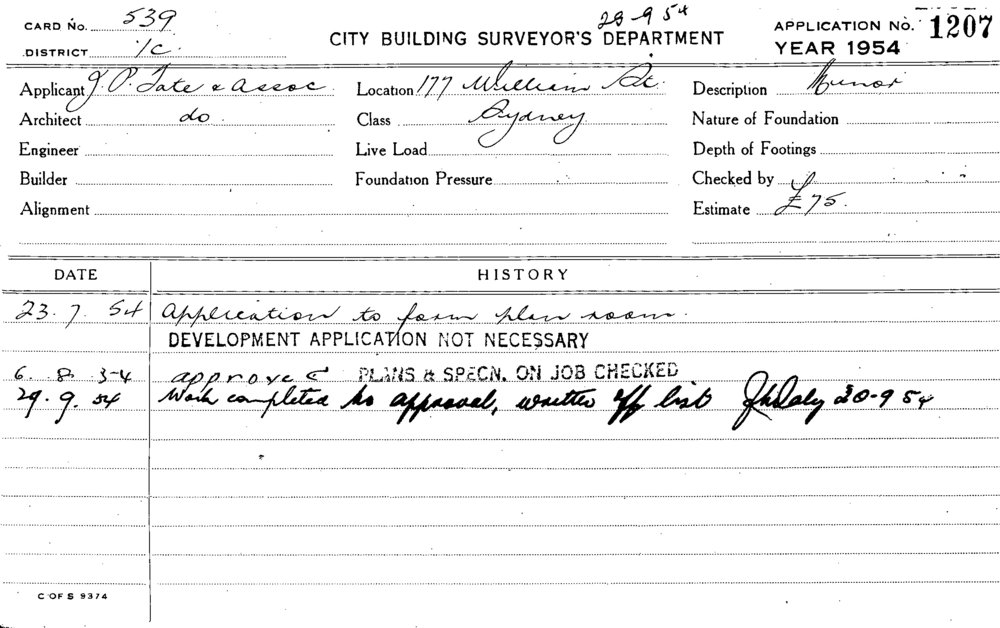 CARD No. 539
29-9 54
APPLICATION No. 1207
DISTRICT 1C.
CITY BUILDING SURVEYOR'S DEPARTMENT
YEAR 1954
Applicant J. P. Tate & Assoc. Location 177 William St. Description Minor
Architect do Class Sydney Nature of Foundation
Engineer Live Load Depth of Footings
Builder Foundation Pressure Checked by
Alignment Estimate £75.
DATE HISTORY
23. 7. 54 Application to form plan room.
DEVELOPMENT APPLICATION NOT NECESSARY
6. 8. 54 approved PLANS & SPECN. ON JOB CHECKED
29. 9. 54 Work completed to approval, written off list 30-9 54
C OF S 9374